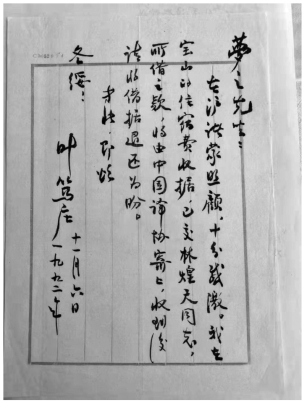 梦之先生：
在沪诸蒙照顾，十分感激。我在
宝山的住宿费收据，已交林煌天同志，
所借之款，将由中国译协寄上，收到后
请将借据退还为盼。
专此，即颂
冬绥！
叶笃庄
十一月六日
一九九二年